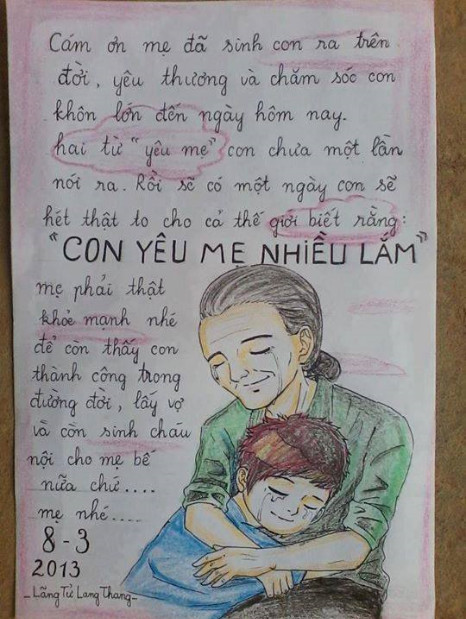 Cám ơn mẹ đã sinh con ra trên
đời, yêu thương và chăm sóc con
khôn lớn đến ngày hôm nay.
hai từ "yêu mẹ" con chưa một lần
nói ra. Rồi sẽ có một ngày con sẽ
hét thật to cho cả thế giới biết rằng:
"CON YÊU MẸ NHIỀU LẮM"
mẹ phải thật
khỏe mạnh nhé
để còn thấy con
thành công trong
đường đời, lấy vợ
và còn sinh cháu
nội cho mẹ bế
nữa chứ....
mẹ nhé....
8-3
2013
_Lãng Tử Lang Thang_